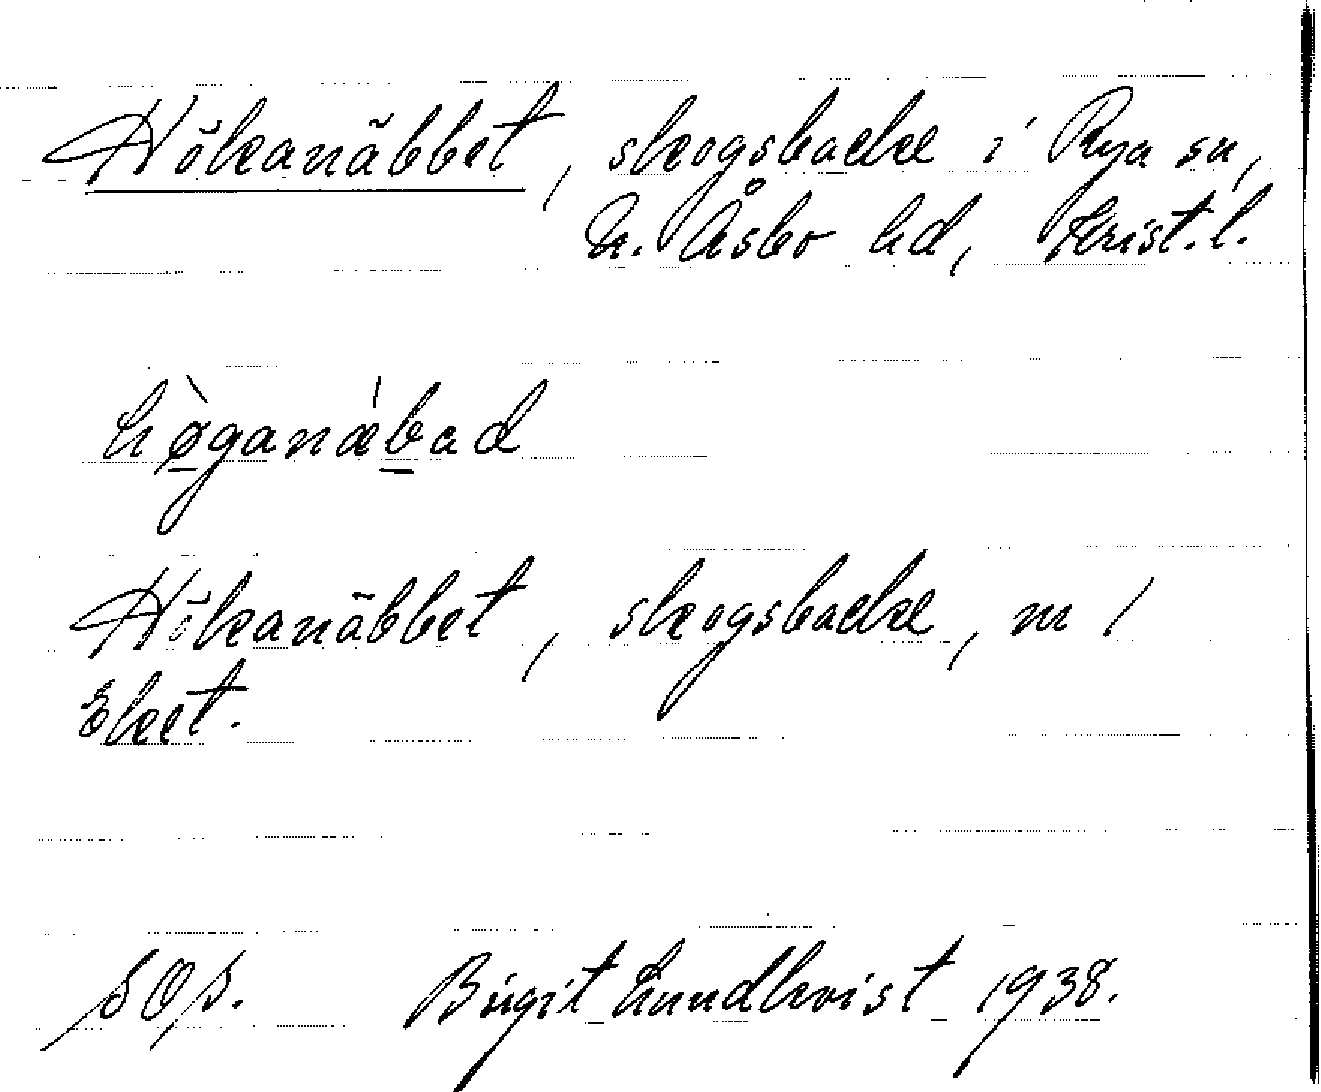 Hökanäbbet, skogsbacke i Rya sn,
N. Åsbo hd, Krist. l.
hø̀ganæ̍bad
Hökanäbbet, skogsbacke, m /
Eket.
Birgit Lundkvist 1938.